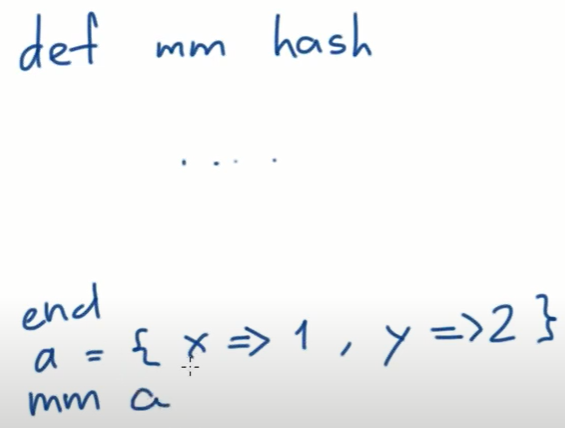 def mm hash
....
end
a = { x => 1 , y => 2 }
mm a